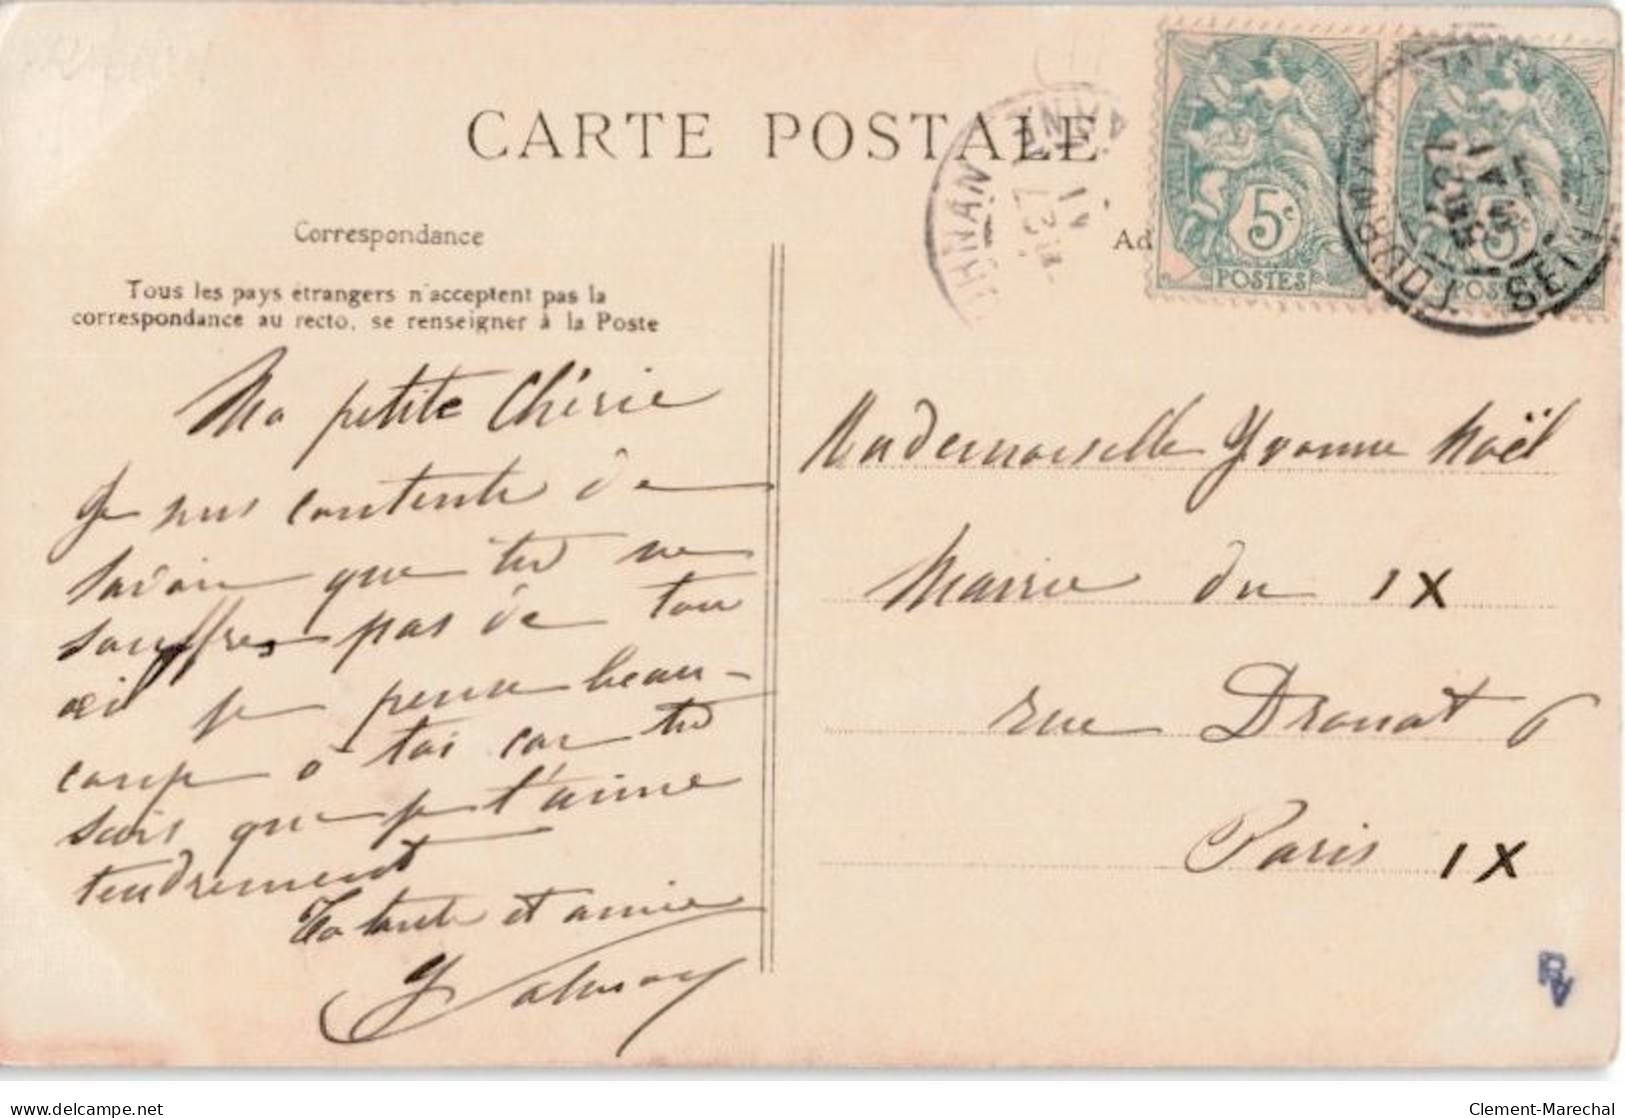 CARTE POSTALE
Correspondance
Tous les pays étrangers n'acceptent pas la
correspondance au recto, se renseigner à la Poste
Ma petite Chérie
Je suis contente de
savoir que tu ne
souffres pas de ton
œil je pense beau-
coup à toi car tu
sais que je t'aime
tendrement
Ta tante et amie
Ad
5c
POSTES
5c
POS
TOURNAN
SEINE
Mademoiselle Yvonne Noël
Mairie du IX
rue Drouot 6
Paris IX
PV
delcampe.net
Clement-Marechal